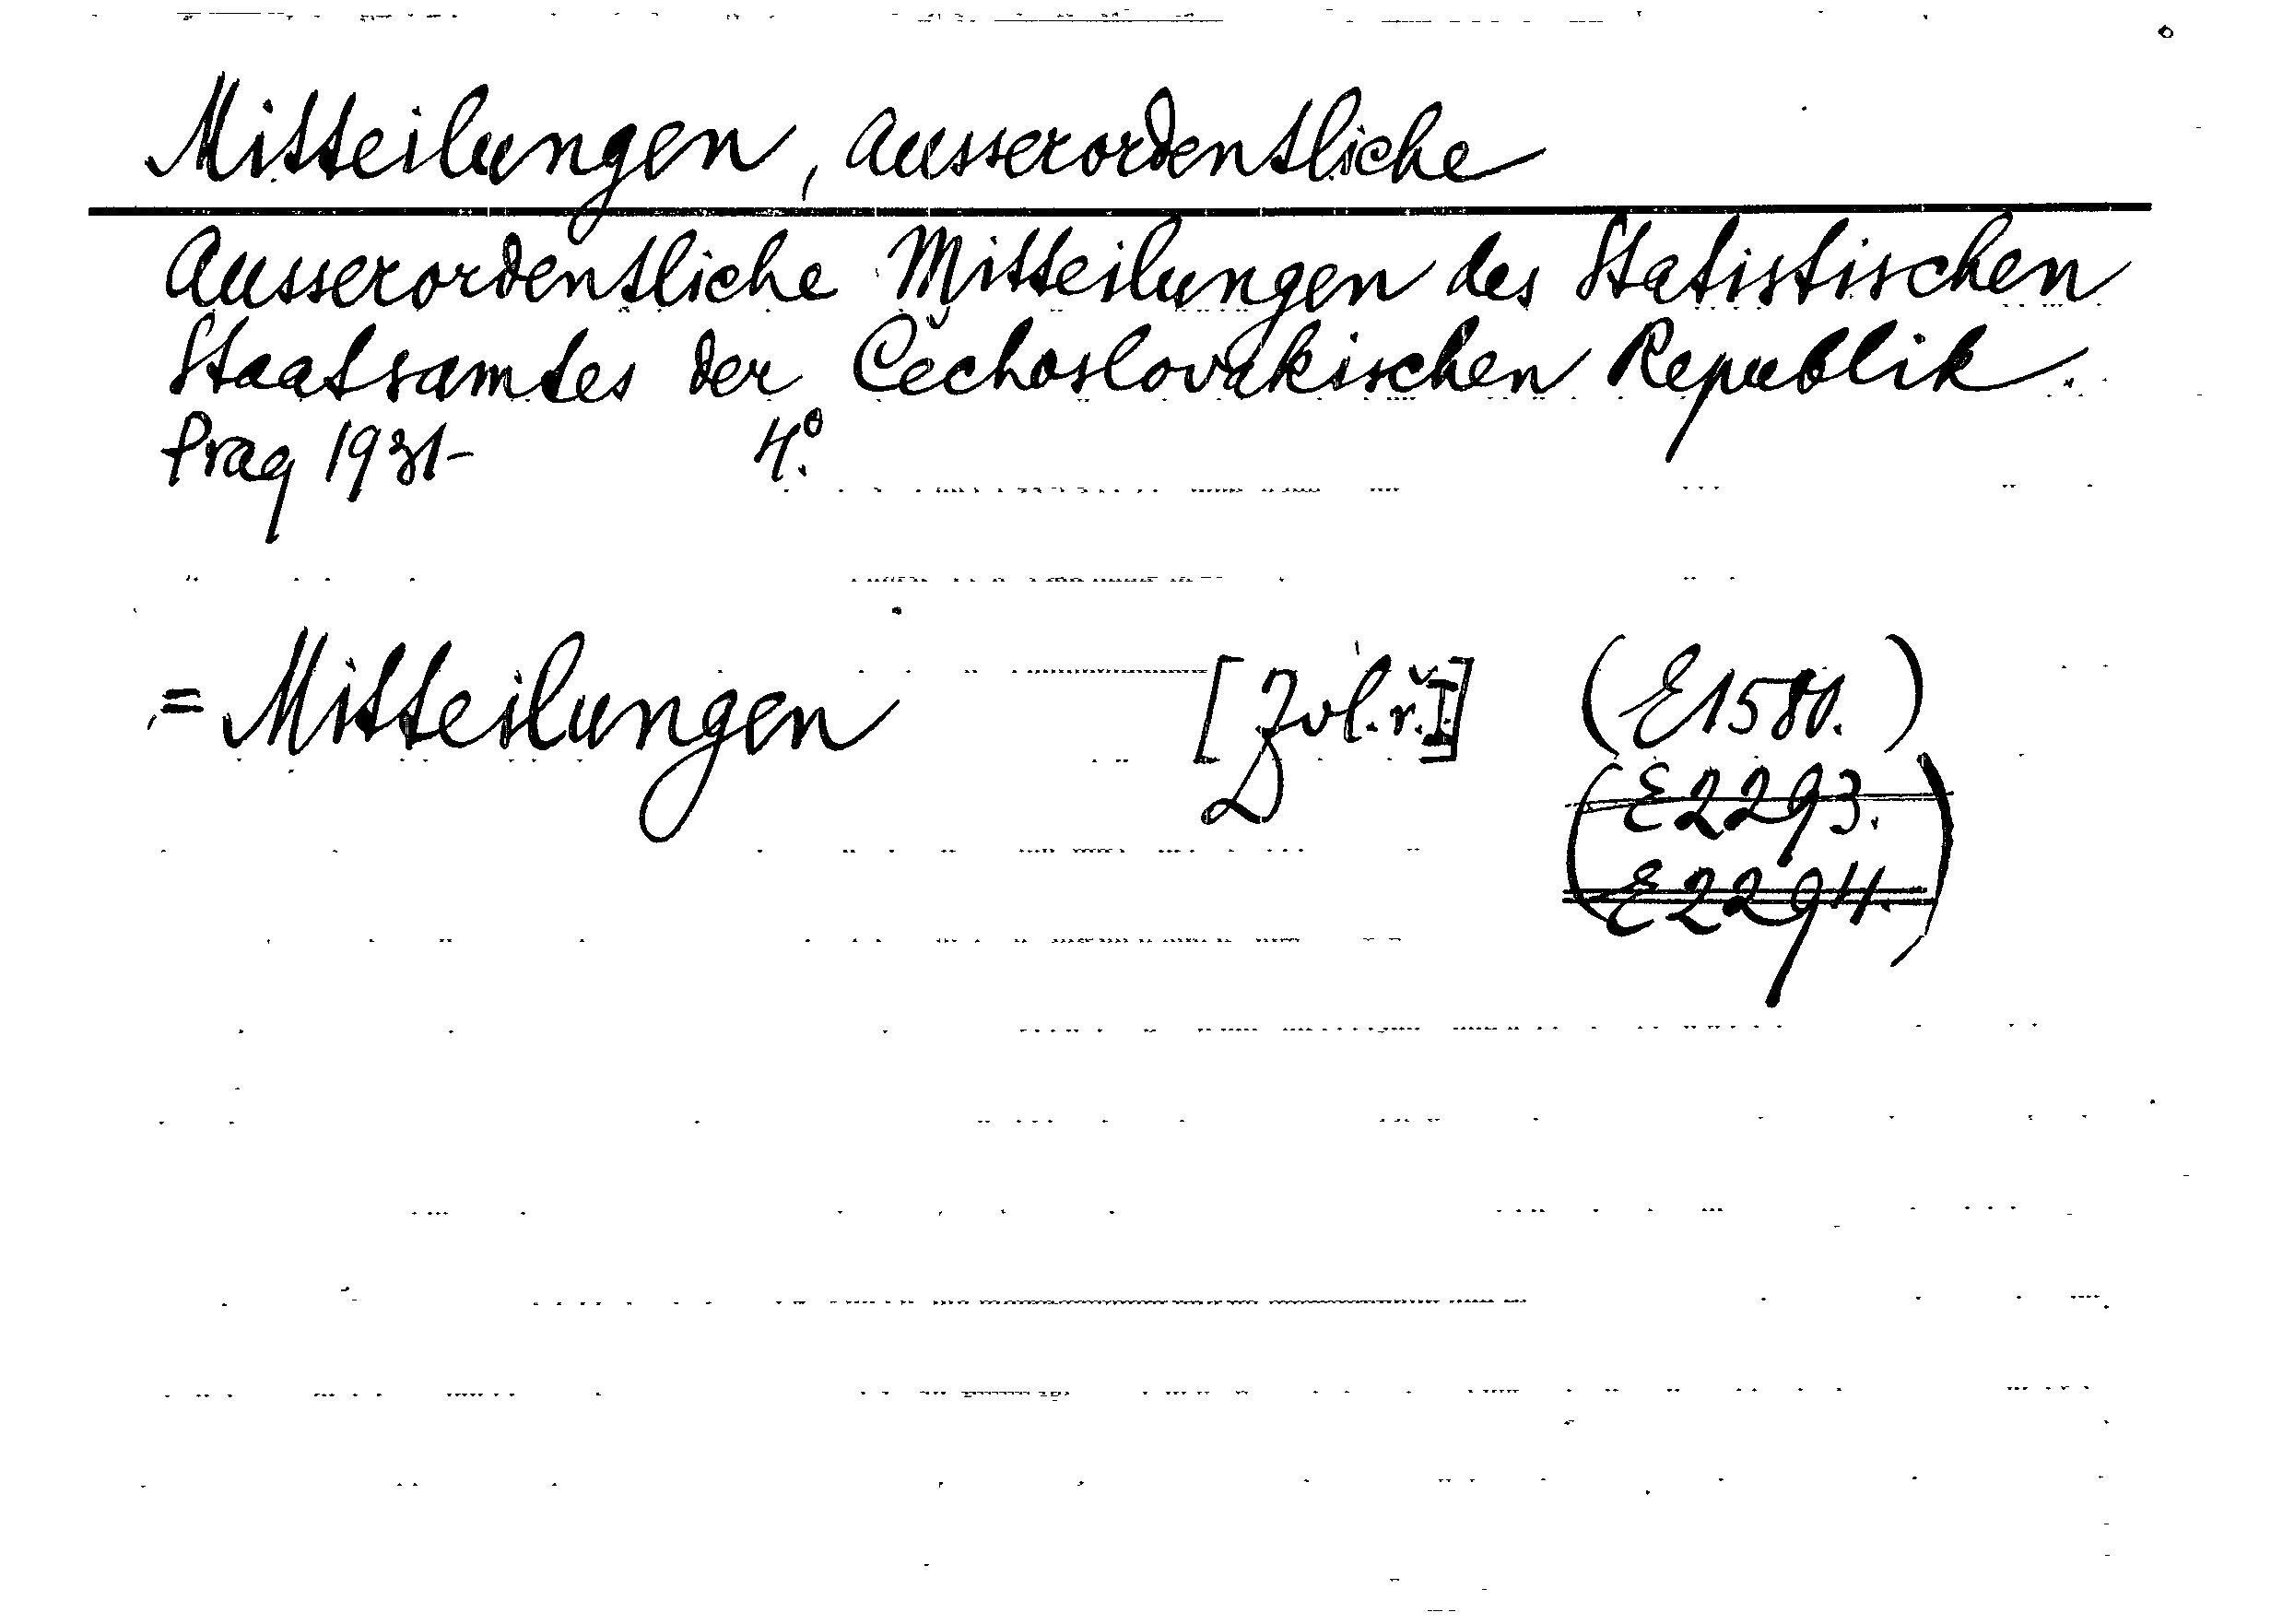 Mitteilungen, ausserordentliche
Ausserordentliche Mitteilungen des Statistischen
Staatsamtes der Čechoslovakischen Republik.
Prag 1931- 4.º
= Mitteilungen [Zvl.ř.I] (E1580.)
(E2293.
E2294.)